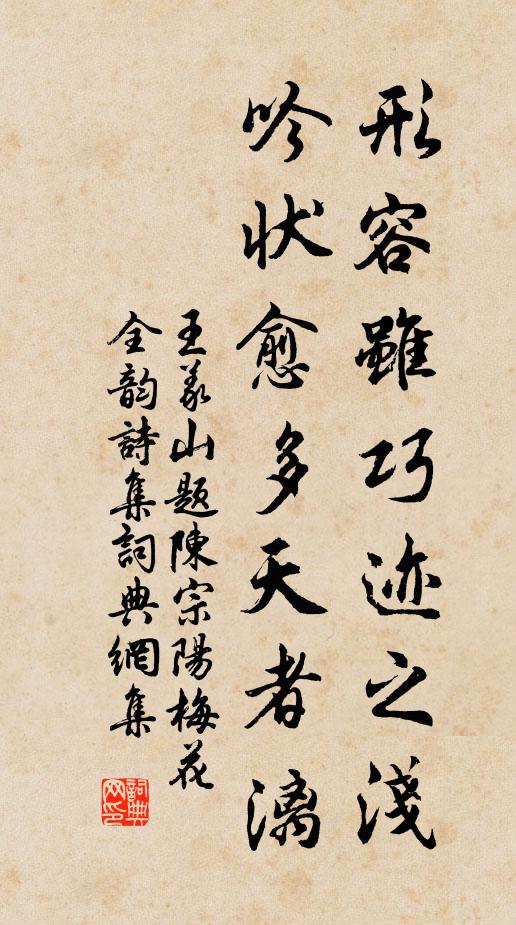 形容雖巧迹之淺
吟狀愈多天者漓
王義山題陳宗陽梅花
全韵詩集詞典網集
詞典网印